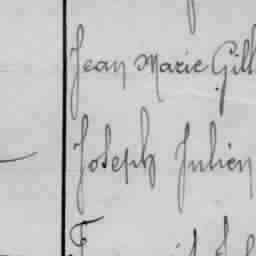 Jean Marie Gill
Joseph Julien